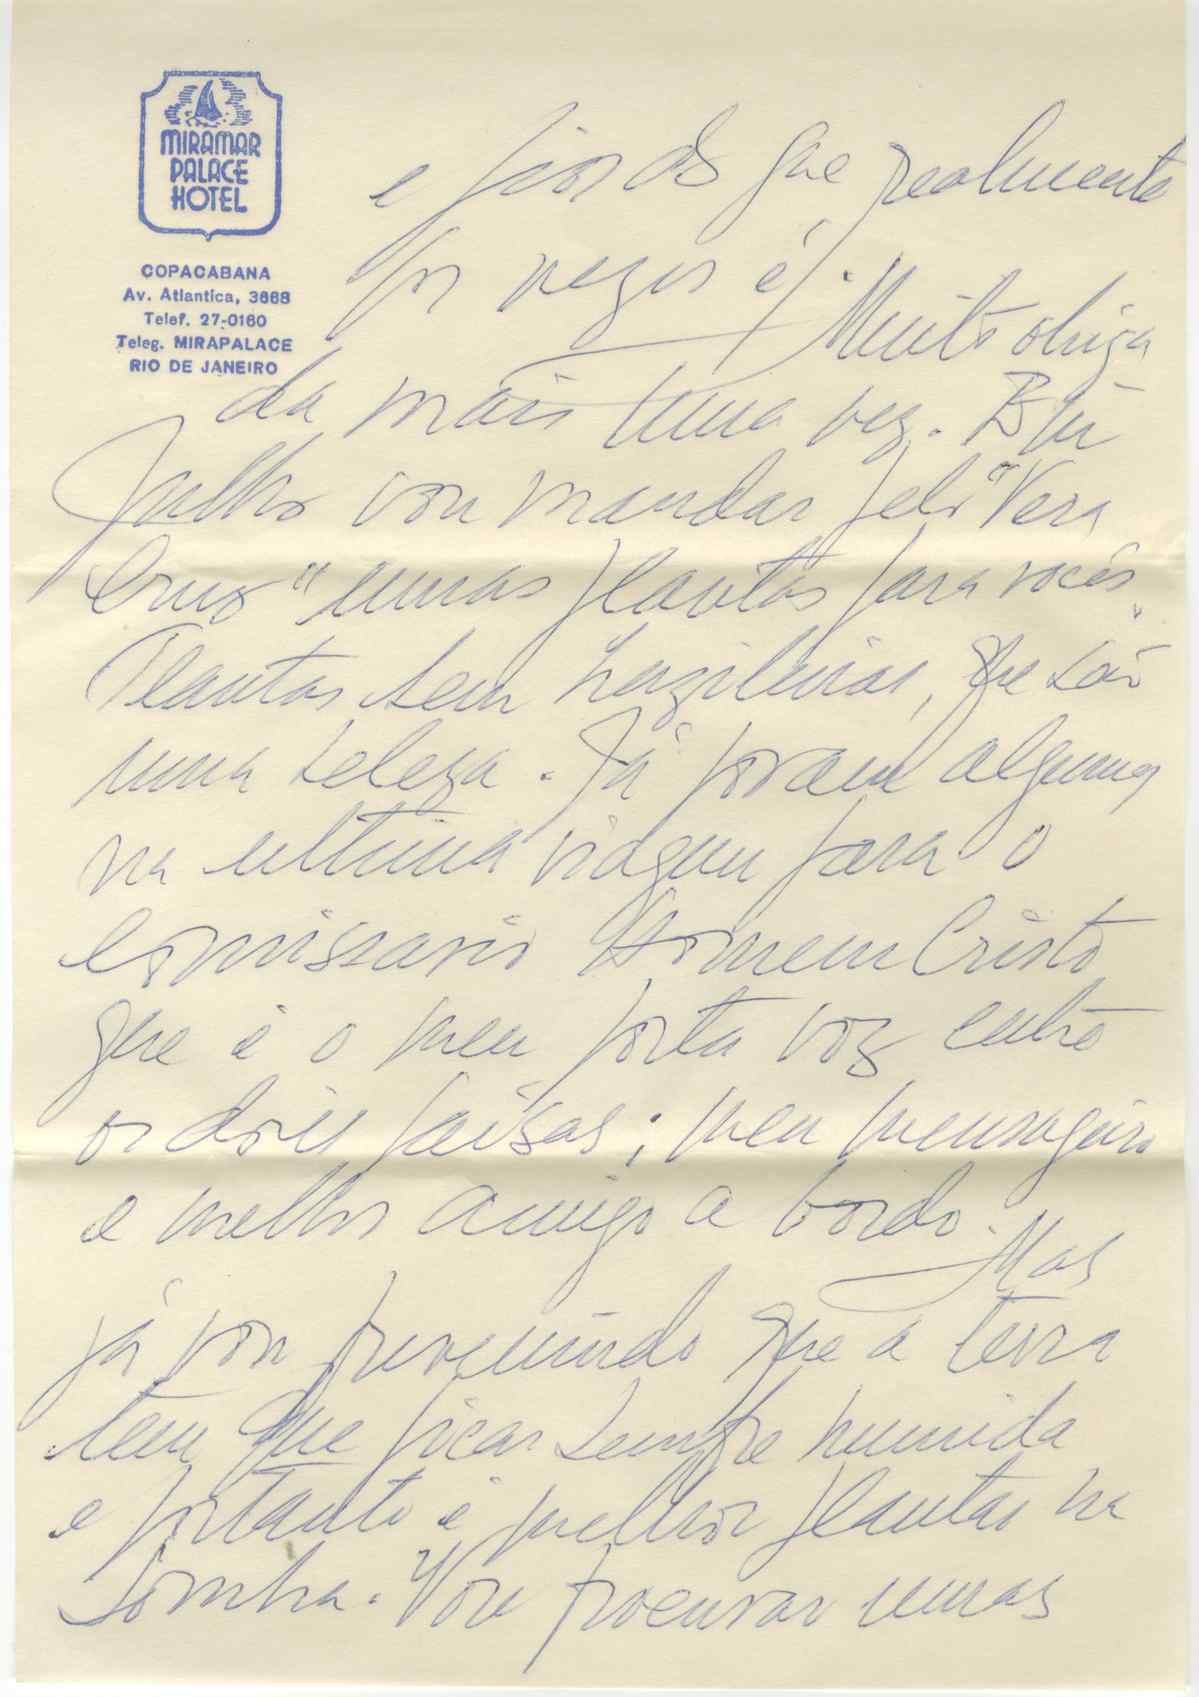 MIRAMAR
PALACE
HOTEL
COPACABANA
Av. Atlantica, 3668
Telef. 27-0160
Teleg. MIRAPALACE
RIO DE JANEIRO
e que realmente
por vezes é. Muito obriga
da mais uma vez. Em
Julho vou mandar pelo "Vera
Cruz" umas plantas para vocês.
Plantas bem brazileiras, que são
uma beleza. Já foram algumas
na ultima viagem para o
Comissario Homem Cristo
que é o meu porta voz entre
os dois paises; meu mensageiro
e melhor amigo a bordo. Mas
já vou prevenindo que a terra
tem que ficar sempre humida
e portanto é melhor plantar na
sombra. Vou procurar umas